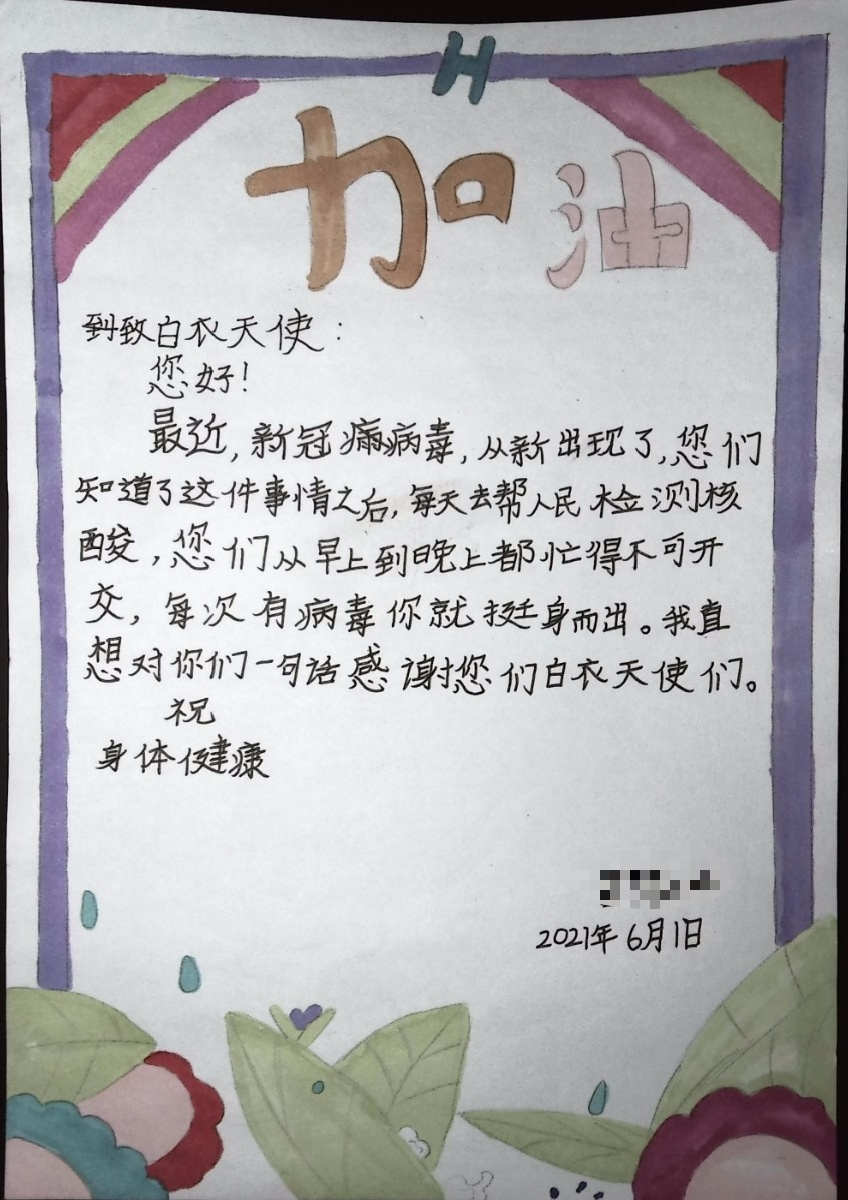 H
加油
到致白衣天使：
您好！
最近，新冠病毒，从新出现了，您们
知道了这件事情之后，每天去帮人民检测核
酸，您们从早上到晚上都忙得不可开
交，每次有病毒你就挺身而出。我直
想对你们一句话感谢您们白衣天使们。
祝
身体健康
2021年6月1日